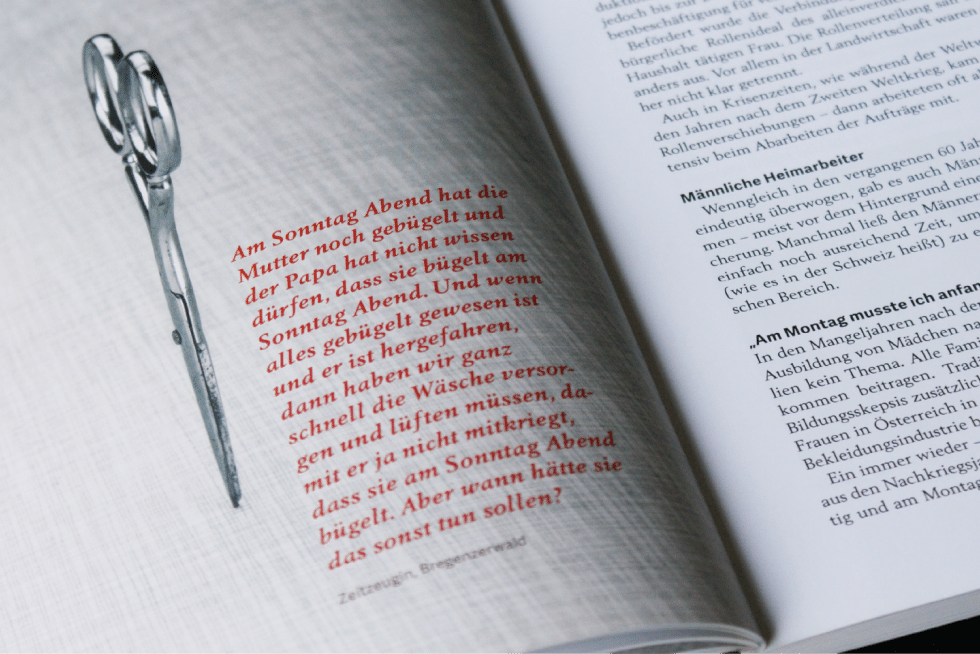 Am Sonntag Abend hat die
Mutter noch gebügelt und
der Papa hat nicht wissen
dürfen, dass sie bügelt am
Sonntag Abend. Und wenn
alles gebügelt gewesen ist
und er ist hergefahren,
dann haben wir ganz
schnell die Wäsche versor-
gen und lüften müssen, da-
mit er ja nicht mitkriegt,
dass sie am Sonntag Abend
bügelt. Aber wann hätte sie
das sonst tun sollen?
Zeitzeugin, Bregenzerwald
jedoch bis zur
benbeschäftigung für
Befördert wurde die Verbindung
bürgerliche Rollenideal des alleinverdie
Haushalt tätigen Frau. Die Rollenverteilung sah
anders aus. Vor allem in der Landwirtschaft waren
her nicht klar getrennt.
Auch in Krisenzeiten, wie während der Welt
den Jahren nach dem Zweiten Weltkrieg, kam
Rollenverschiebungen – dann arbeiteten oft a
tensiv beim Abarbeiten der Aufträge mit.
Männliche Heimarbeiter
Wenngleich in den vergangenen 60 Jah
eindeutig überwogen, gab es auch Män
men – meist vor dem Hintergrund eine
cherung. Manchmal ließ den Männer
einfach noch ausreichend Zeit, un
(wie es in der Schweiz heißt) zu
schen Bereich.
„Am Montag musste ich anfa
In den Mangeljahren nach de
Ausbildung von Mädchen
lien kein Thema. Alle Fami
kommen beitragen. Trad
Bildungsskepsis zusätzli
Frauen in Österreich in
Bekleidungsindustrie
Ein immer wieder –
aus den Nachkriegs
tig und am Montag